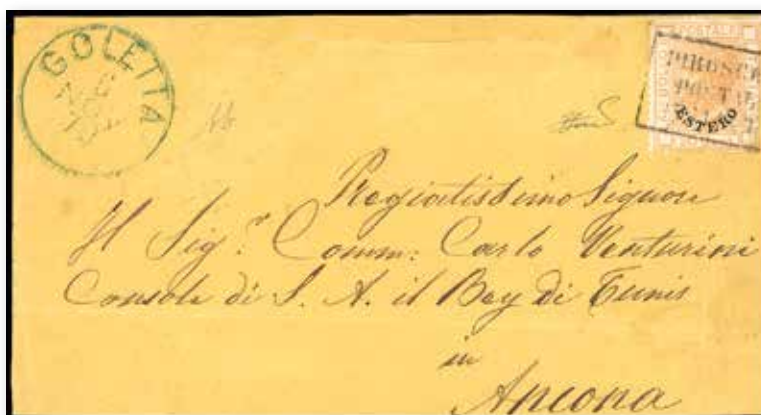 GOLETTA
POSTALE
PIROSC
POST
ESTERO
Pregiatissimo Signore
Il Sig.r Comm: Carlo Venturini
Console di S. A. il Bey di Tunis
in
Ancona